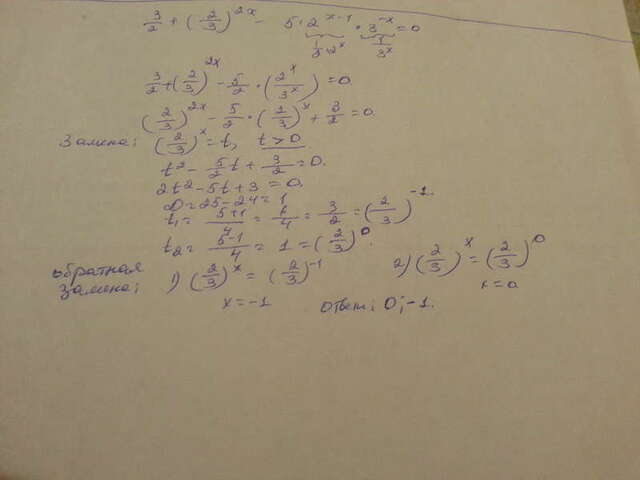 3/2 + (2/3)^2x - 5·2^x-1 · 3^-x = 0
1/2·2^x 1/3^x
3/2 + (2/3)^2x - 5/2 · (2^x/3^x) = 0
(2/3)^2x - 5/2 · (2/3)^x + 3/2 = 0.
Замена: (2/3)^x = t, t > 0
t² - 5/2 t + 3/2 = 0.
2t² - 5t + 3 = 0.
D = 25 - 24 = 1
t₁ = 5+1/4 = 6/4 = 3/2 = (2/3)^-1.
t₂ = 5-1/4 = 1 = (2/3)^0.
обратная
замена: 1) (2/3)^x = (2/3)^-1 2) (2/3)^x = (2/3)^0
x = -1 x = 0
ответ: 0; -1.